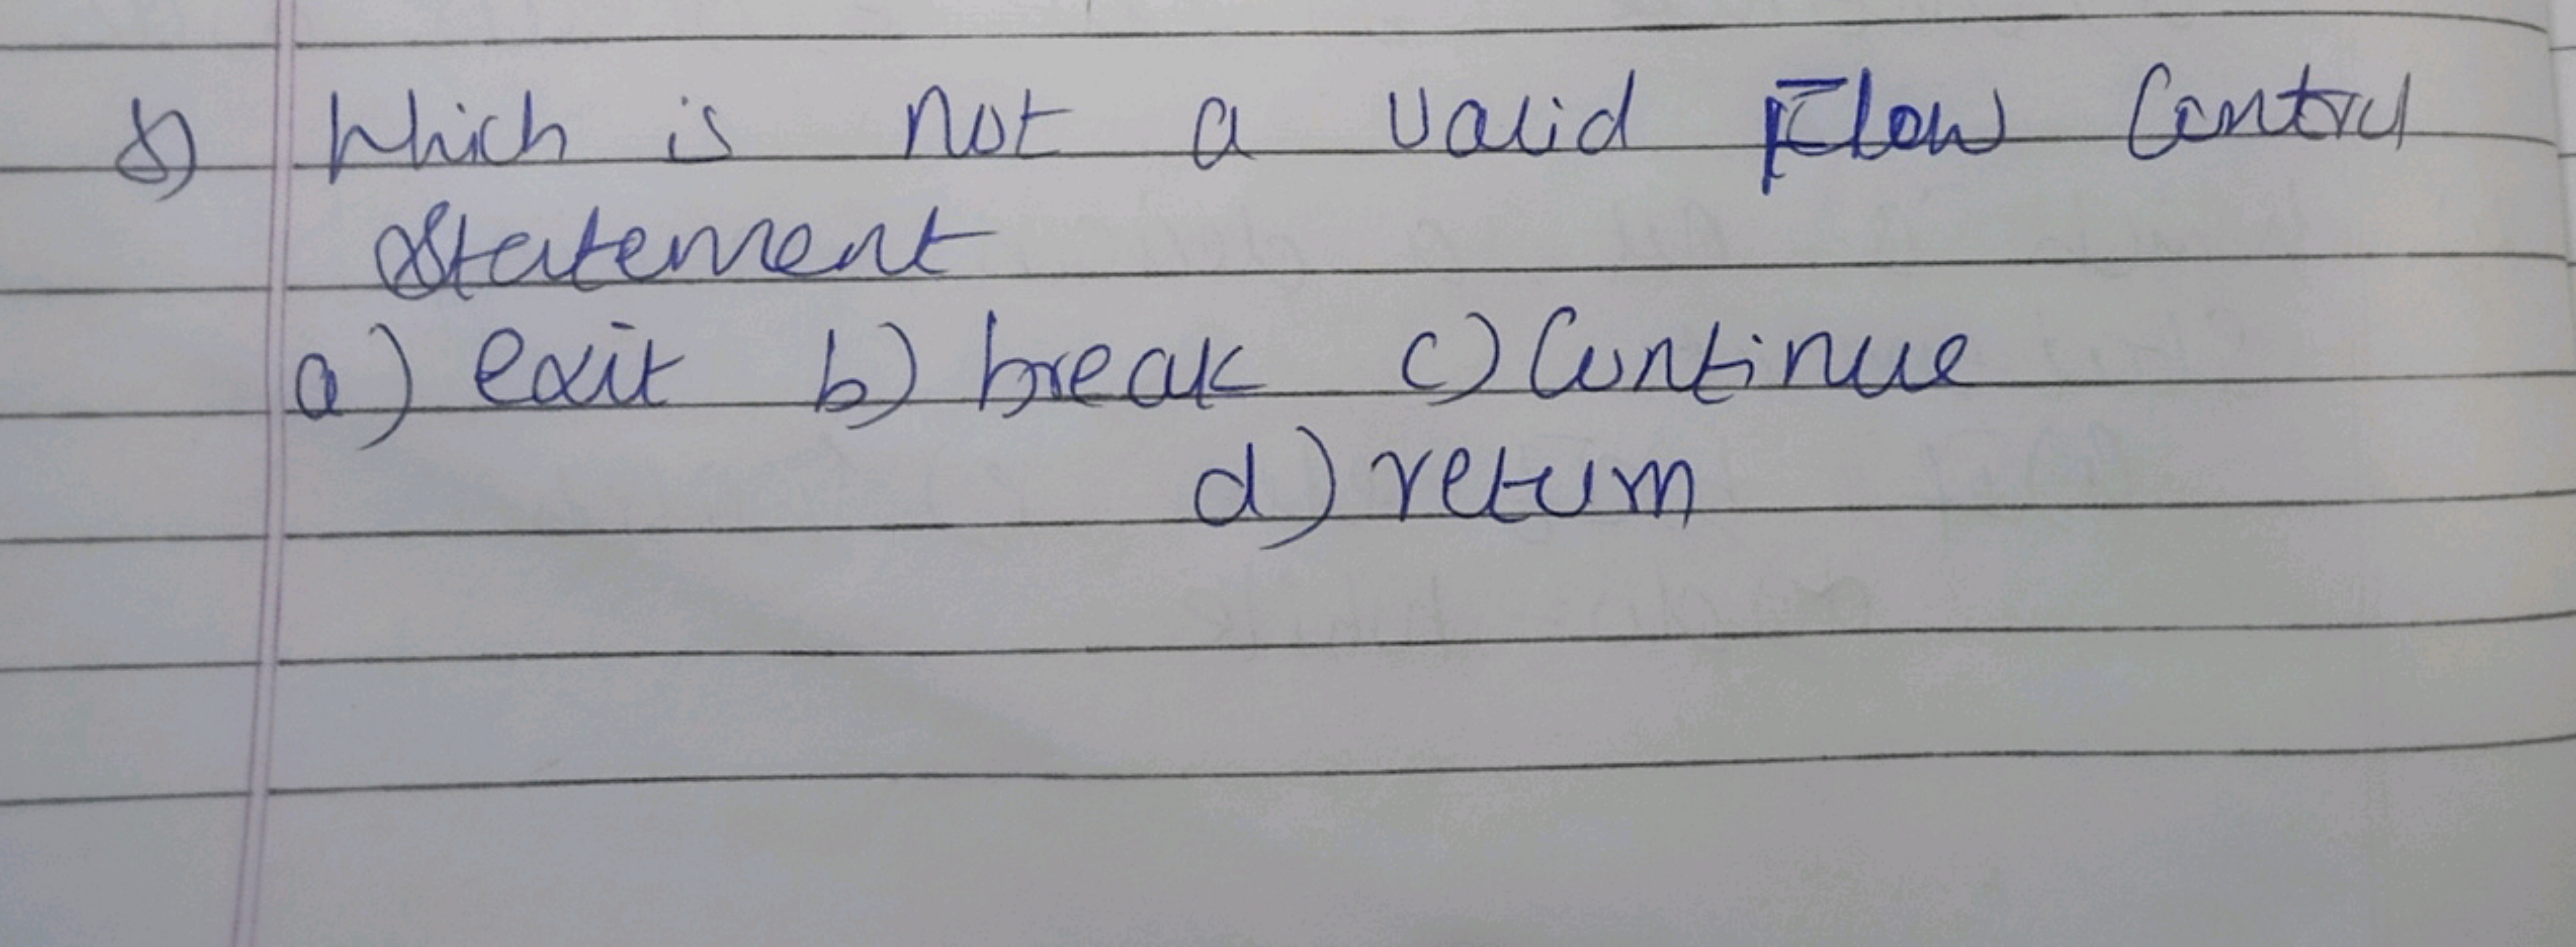 8) Which is not a valid Flow Control
Statement
a) exit b) break c) Continue
d) return